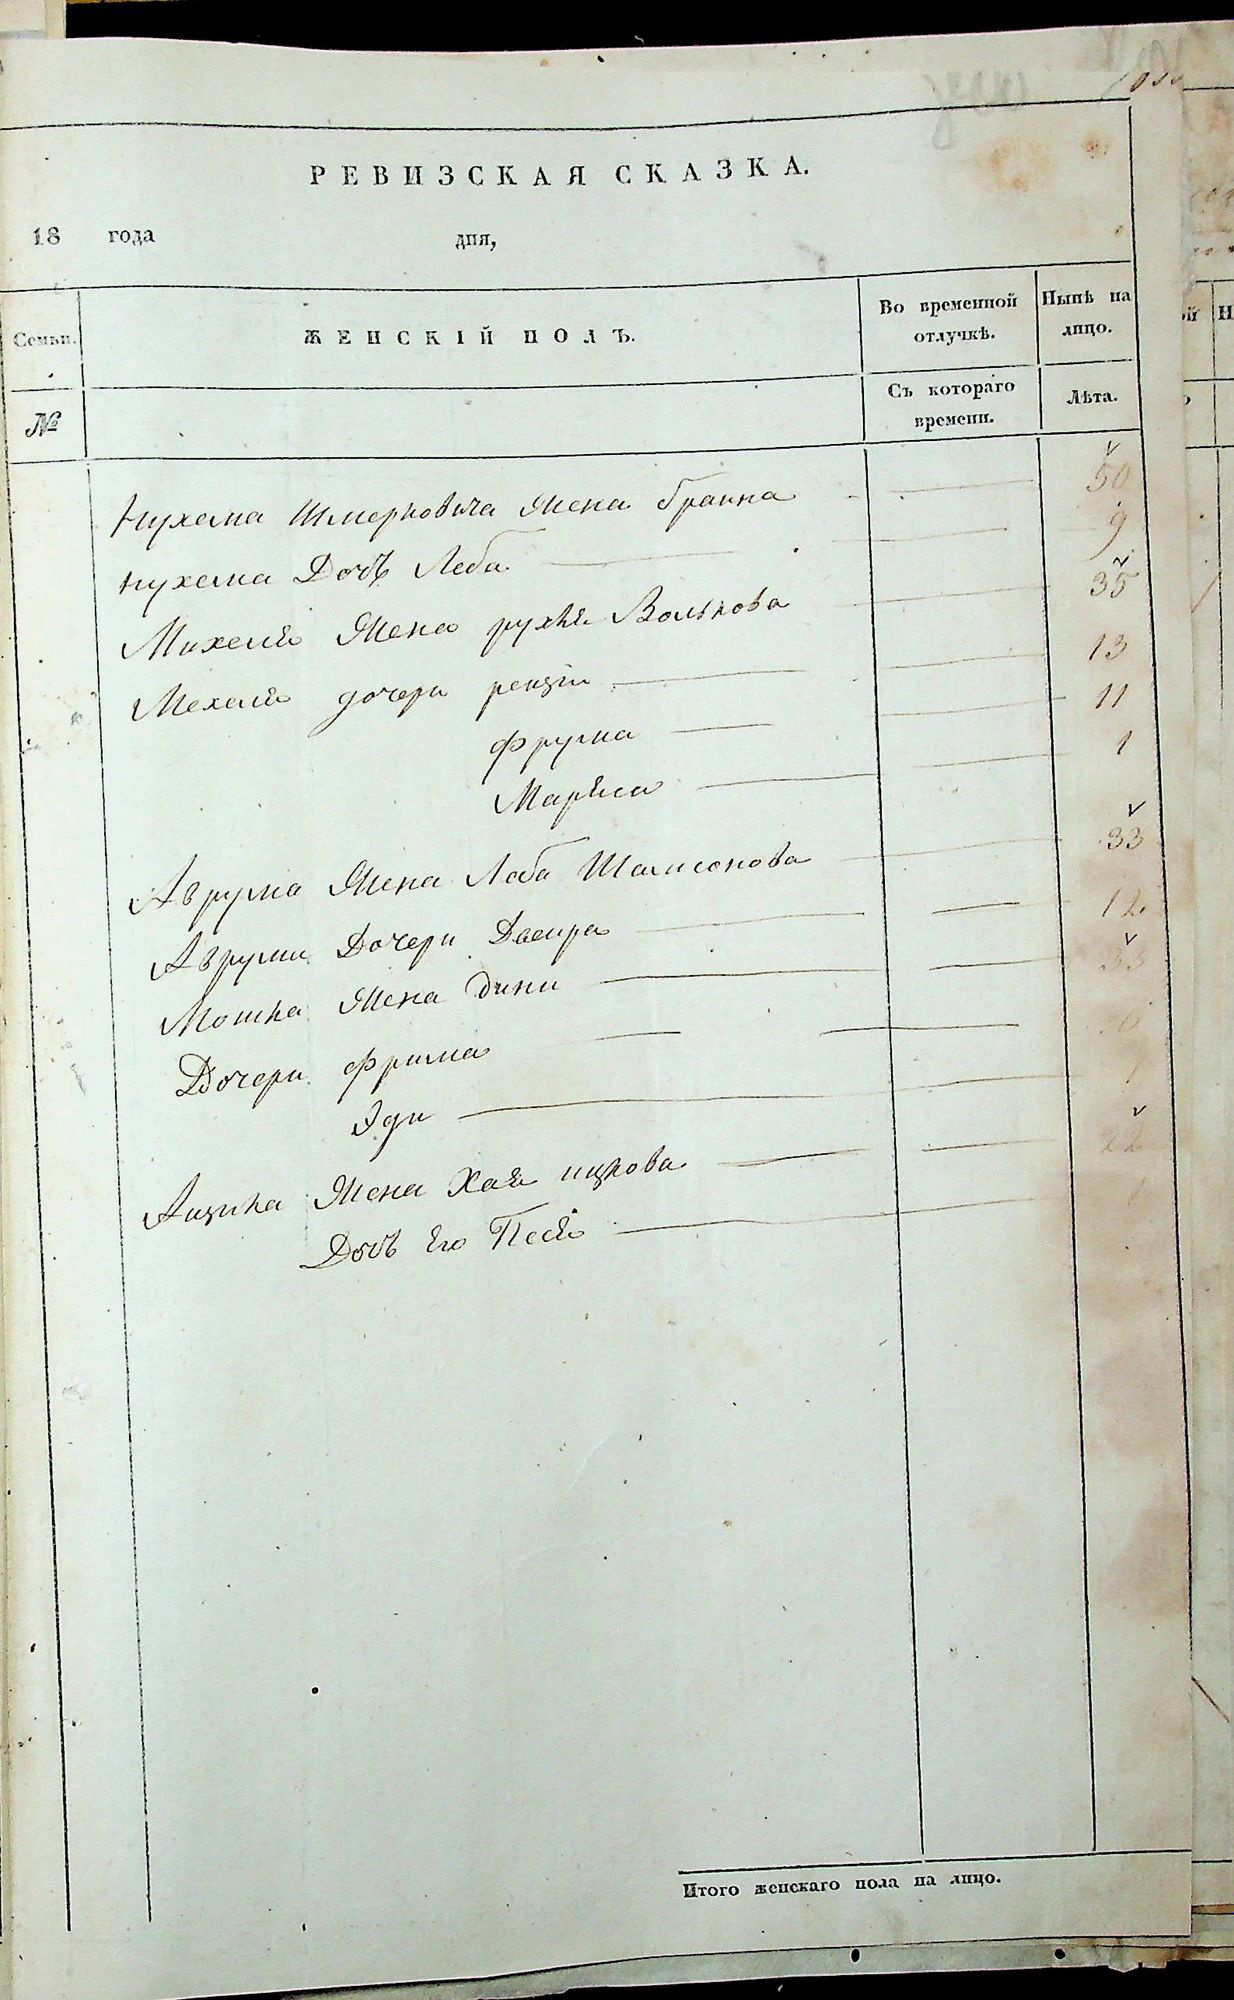 РЕВИЗСКАЯ СКАЗКА.
18 года дня,
Семьи. ЖЕНСКІЙ ПОЛЪ. Во временной отлучкѣ. Нынѣ на лицо.
№ Съ котораго времени. Лѣта.
Нухема Шмерковича Жена Браина 50
Нухема Дочь Леба 9
Михеля Жена рухля Волькова 35
Мехеля дочери 13
Фрума 11
Маряса 1
Аврума Жена Леба Шамсонова 33
Аврума Дочери Двеира 12
Мошка Жена дини 33
Дочери Фрима
Эди
Жена Хая ицкова 22
Дочь Его Песя
Итого женскаго пола на лицо.